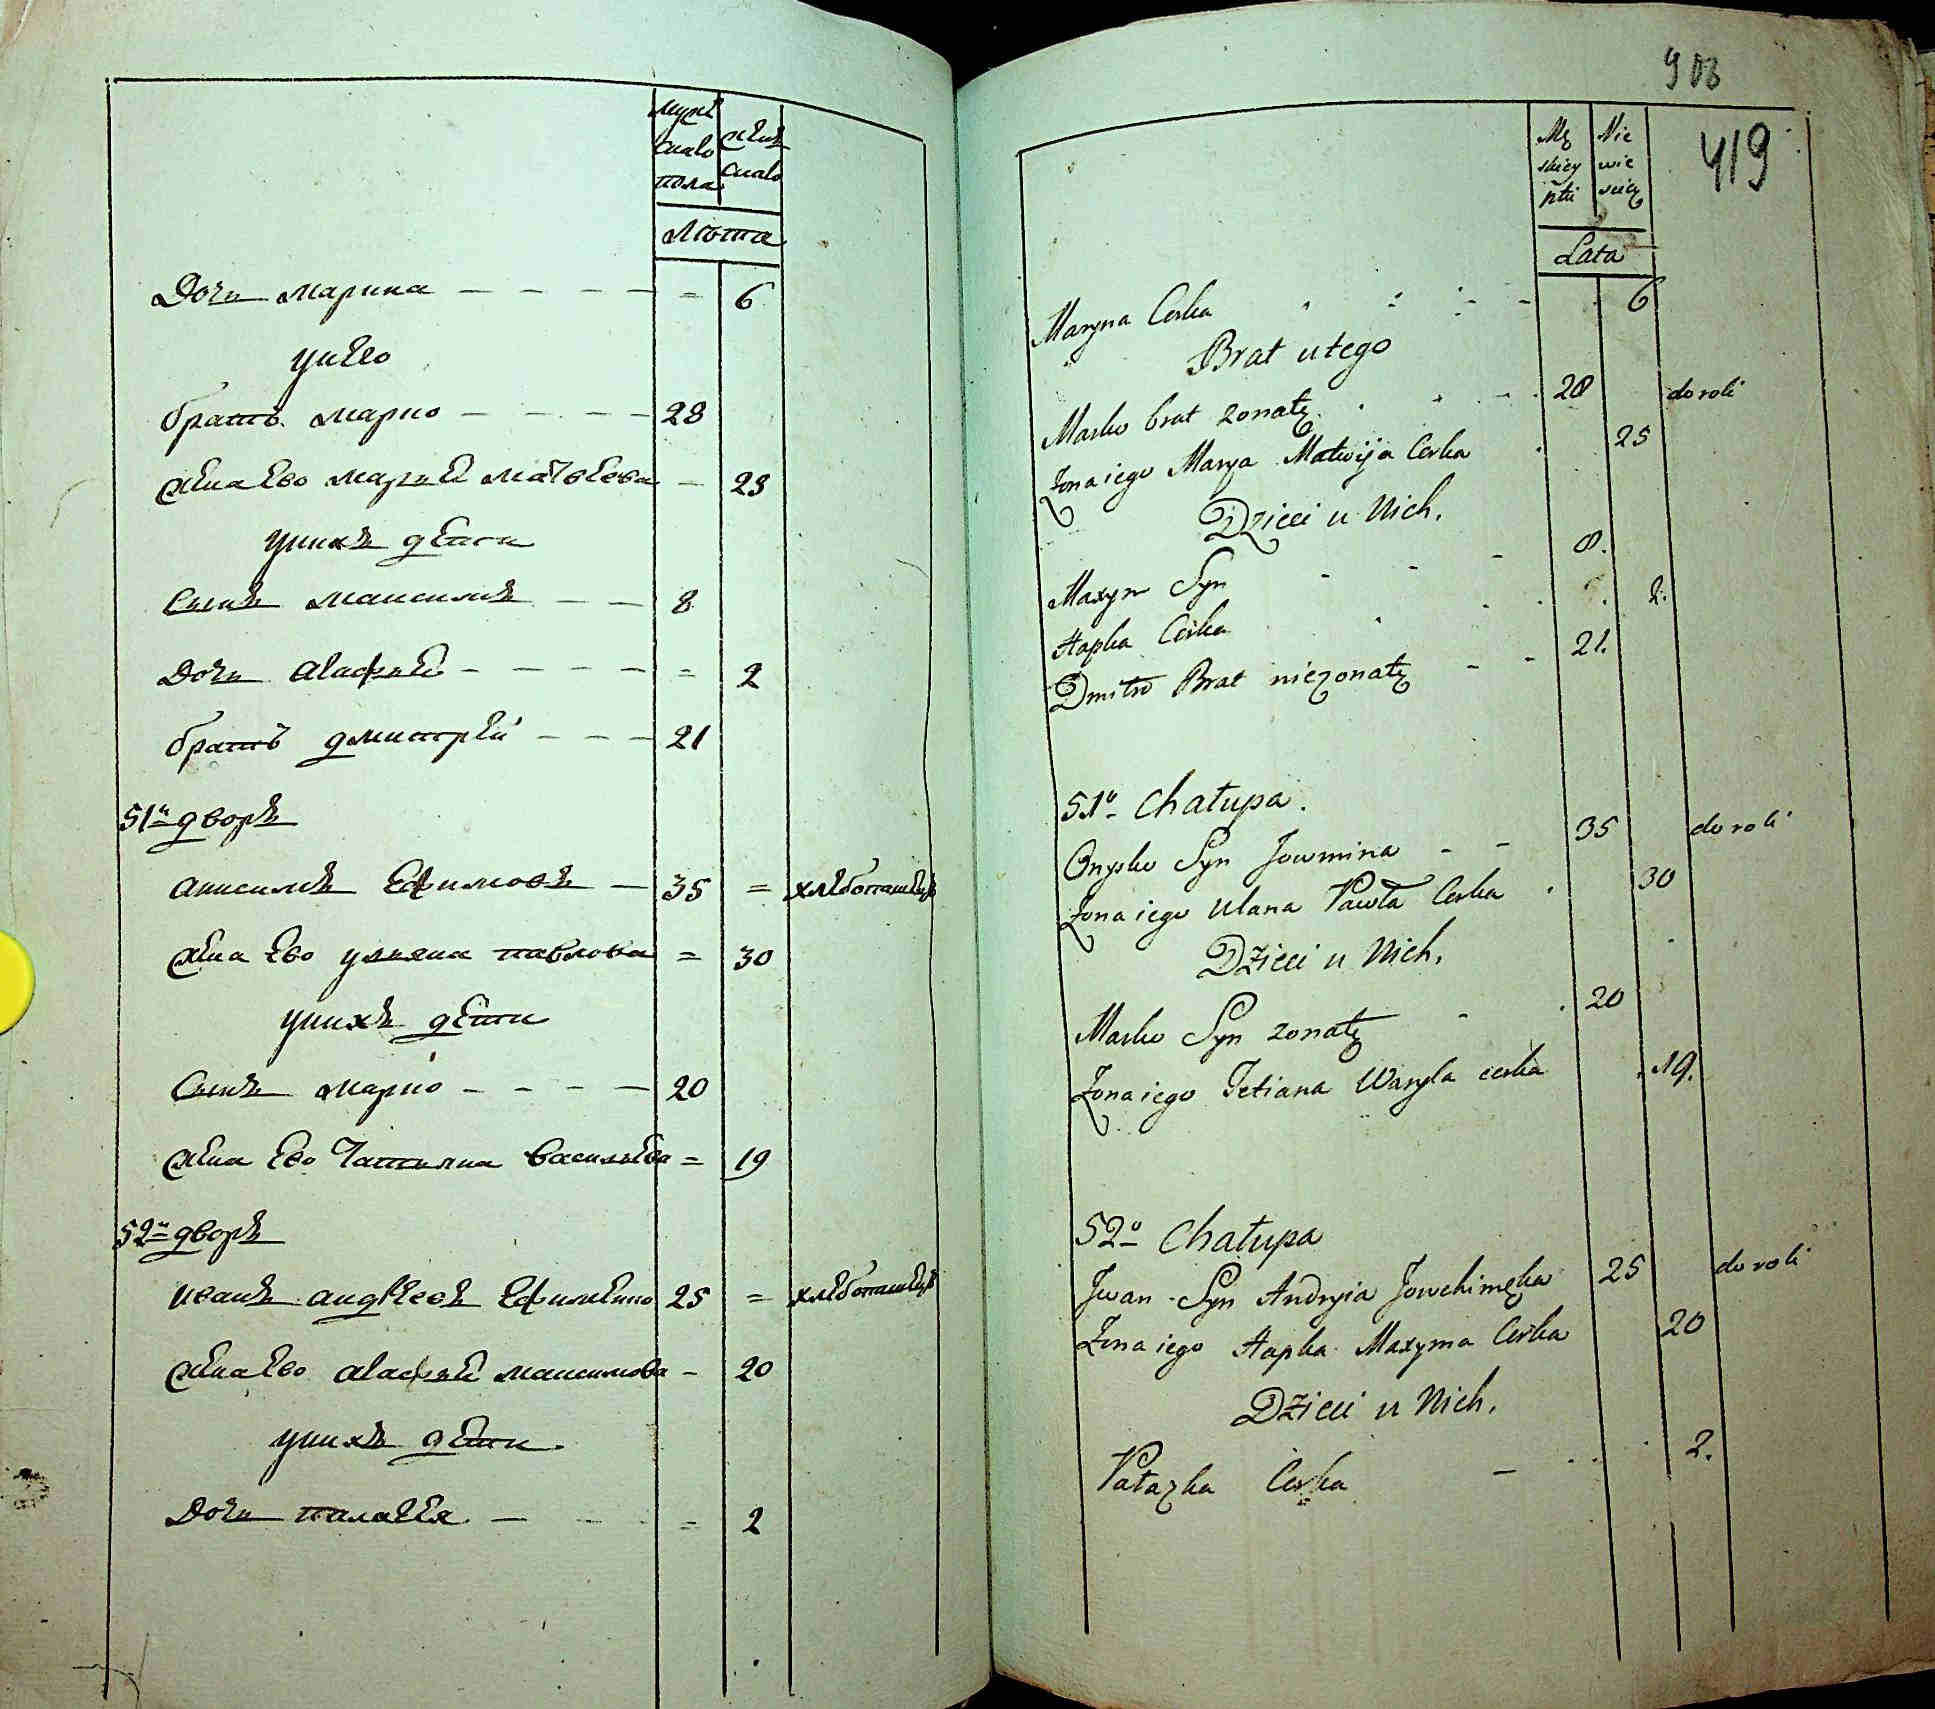 мужеска пола
женска
Лѣта
Дочь марина - - - - = 6
у нево
братъ марко - - - - 28
жена ево мариѣ матвѣева - 23
у нихъ дѣти
Сынъ максимъ - - 8
Дочь агафиѣ - - - - = 2
братъ дмитрѣй - - - 21
51й дворъ
анисимъ Ефимовъ - 35 = хлѣбопашецъ
жена ево ульяна павлова = 30
у нихъ дѣти
Сынъ марко - - - - 20
жена ево Татьяна васильева = 19
52й дворъ
иванъ андрѣевъ 25 = хлѣбопашецъ
жена ево агафиѣ максимова - 20
у нихъ дѣти
Дочь палагея - - - = 2
908
419
Mę skiey płci
Nie wie sciey
Lata
Maryna Corka 6
Brat u tego
Marko brat zonaty 28 do roli
Zona iego Marya Matwija Corka 25
Dzieci u Nich.
Maxym Syn 8.
Hapka Corka 2.
Dmitro Brat niezonaty - - 21.
51o Chałupa.
Onysko Syn Jowmina - - 35 do roli
Zona iego Ulana Pawła Corka 30
Dzieci u Nich.
Marko Syn zonaty 20
Zona iego Tetiana Wasyla corka 19.
52o Chałupa
Jwan Syn Andryia 25 do roli
Zona iego Hapka Maxyma Corka 20
Dzieci u Nich.
Pałazka Corka - 2.